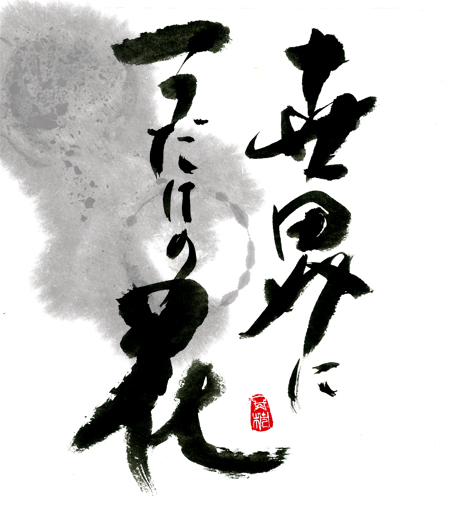 世界に
一つだけの花